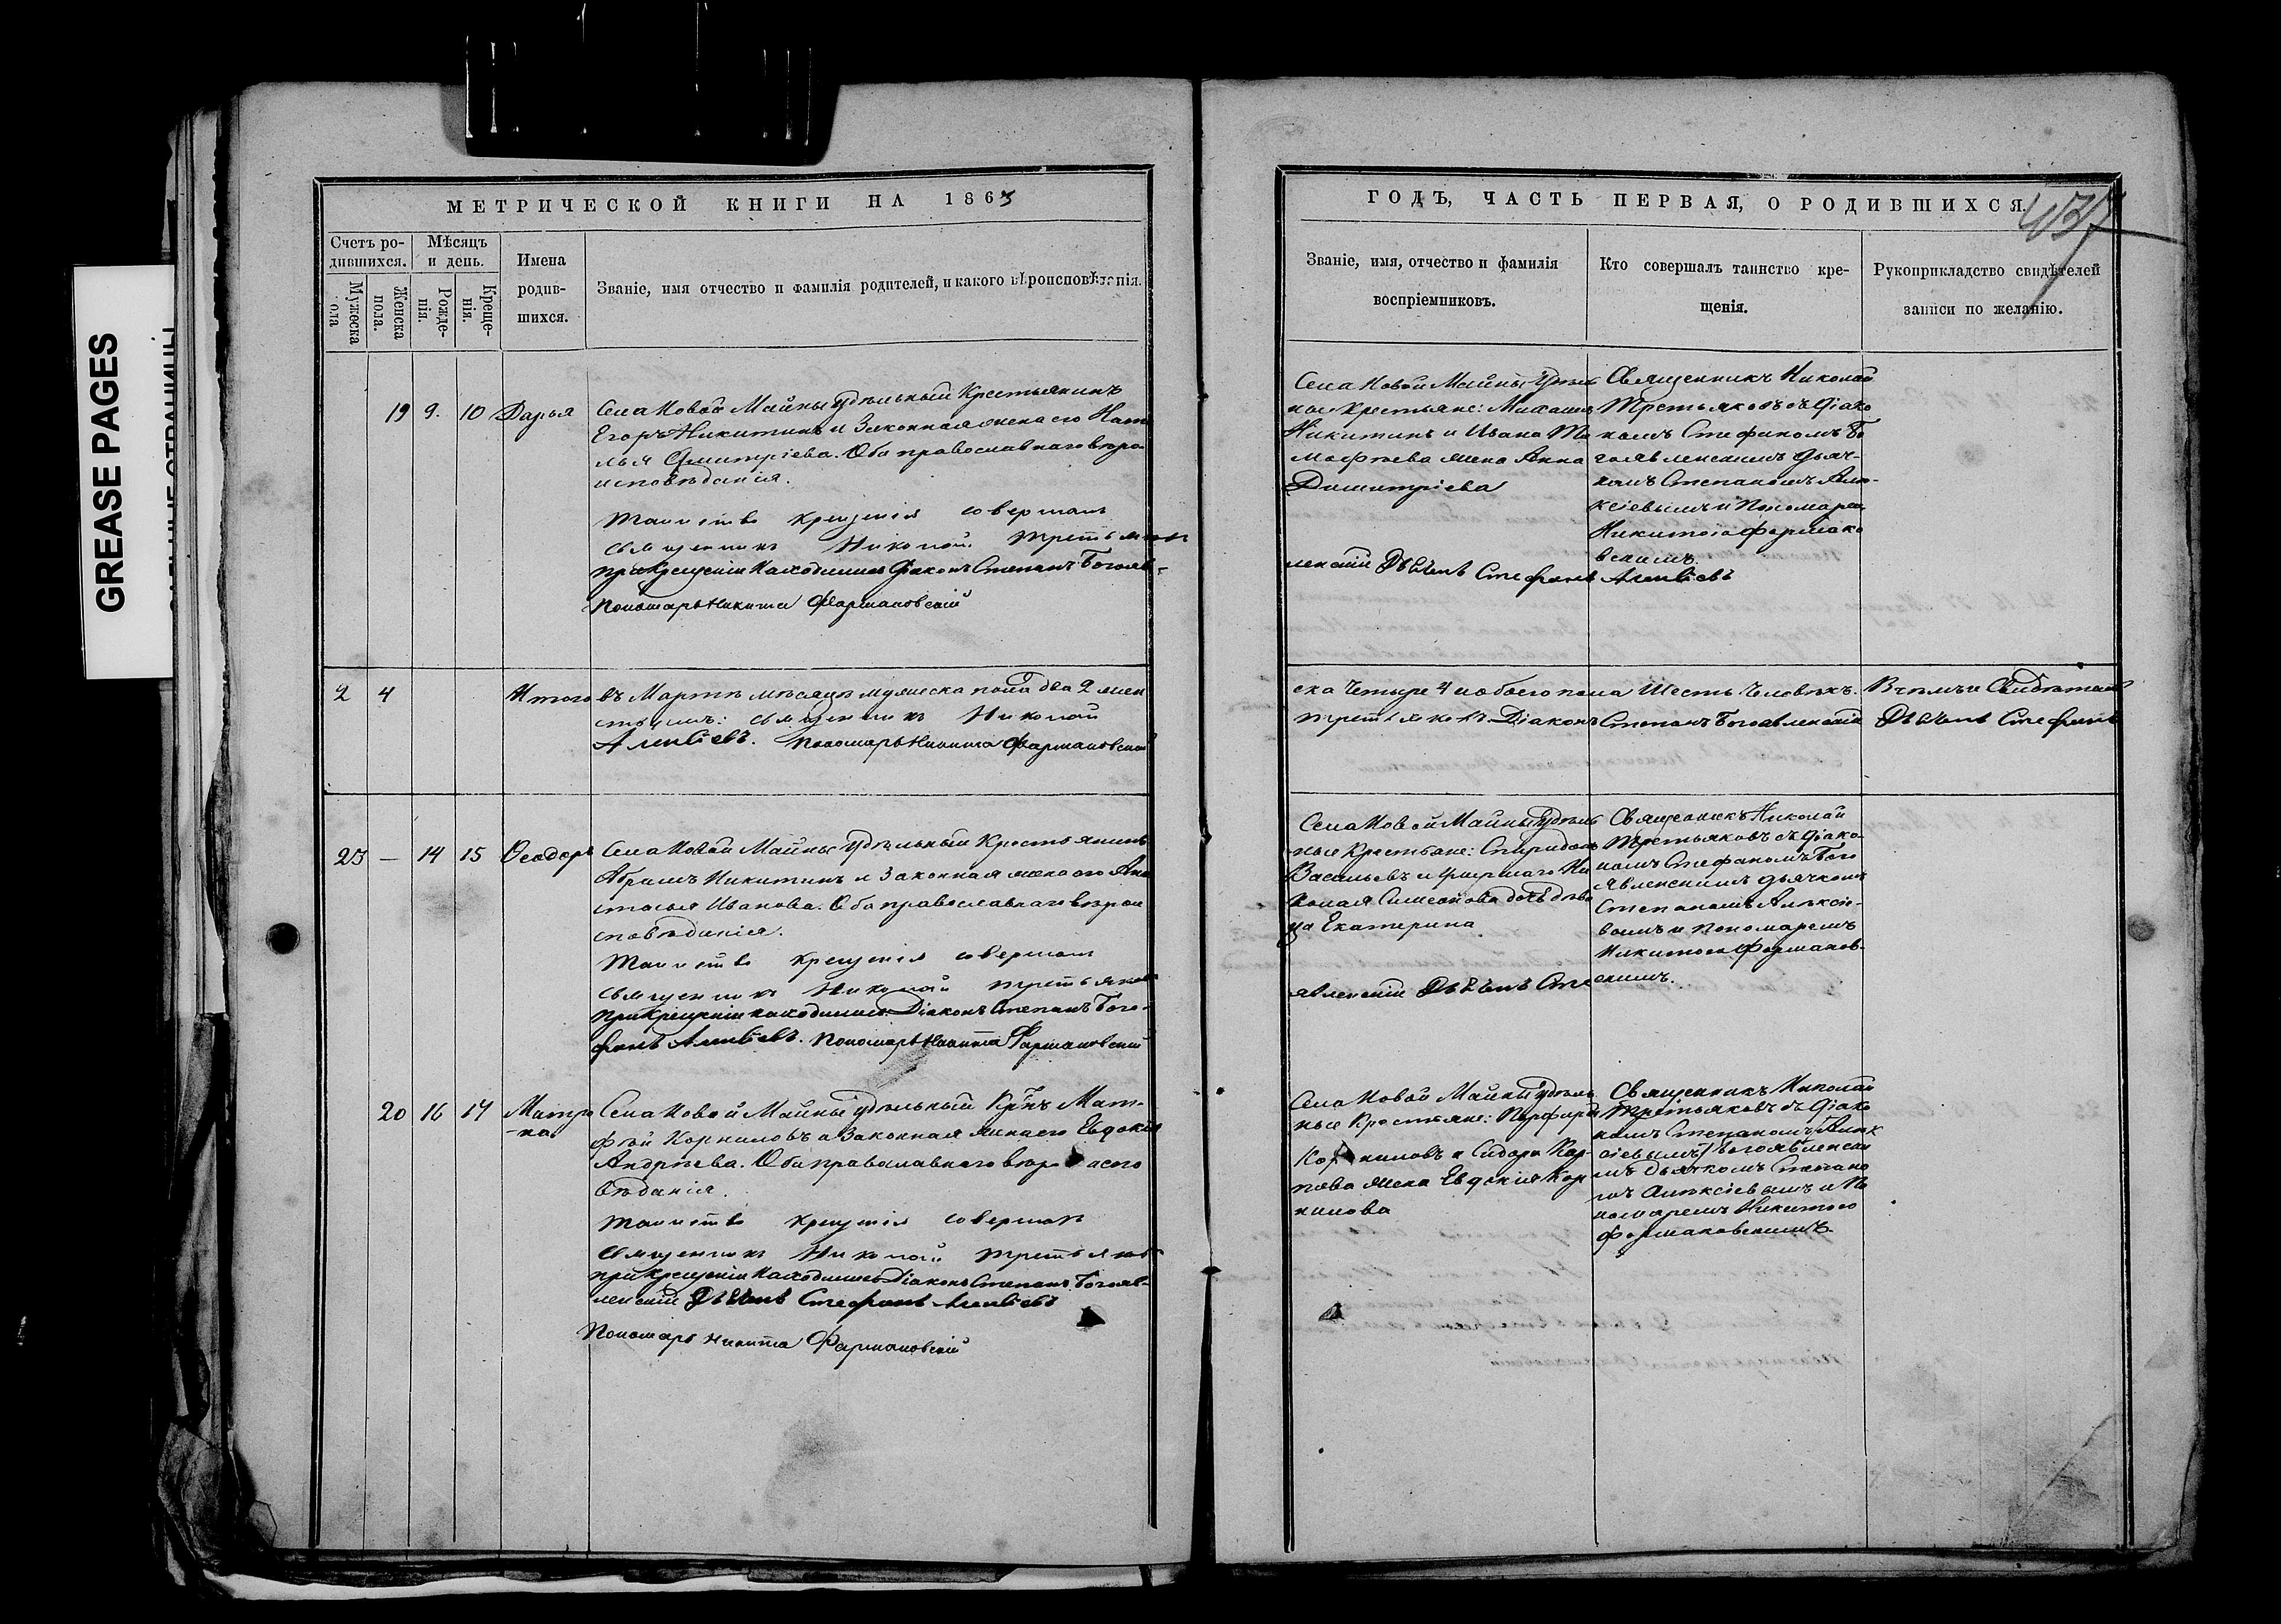 GREASE PAGES
МЕТРИЧЕСКОЙ КНИГИ НА 1863
Счетъ ро-
дившихся.
Мужеска
пола
Женска
пола.
Мѣсяцъ
и день.
Рожде-
нія.
Креще-
нія.
Имена
родив-
шихся.
Званіе, имя отчество и фамилія родителей, и какого вѣроисповѣданія.
19 9. 10 Дарья
Села Новой Майны удѣльный Крестьянинъ
Егоръ Никитинъ и Законная жена его Ната
лья Димитріева. Оба православнаго вѣро
исповѣданія.
Таинство крещенія совершалъ
священникъ Николай Третьяковъ
при крещеніи находились Діаконъ Степанъ Богояв-
Пономарь Никита Фармаковскій
2 4 Итого въ Мартѣ мѣсяцѣ мужеска пола два 2 жен
священникъ Николай
Алексіевъ. Пономарь Никита Фармаковскій
23 — 14 15 Ѳеодоръ
Села Новой Майны удѣльный Крестьянинъ
Абрамъ Никитинъ и Законная жена его Ана
стасья Иванова. Оба православнаго вѣрои
сповѣданія.
Таинство крещенія совершалъ
священникъ Николай Третьяковъ
при крещеніи находились Діаконъ Степанъ Бого-
фанъ Алексіевъ. Пономарь Никита Фармаковскій
20 16 17 Матро
-на
Села Новой Майны удѣльный Кр'нъ Мат-
фѣй Корниловъ и Законная жена его Евдокія
Андрѣева. Оба православнаго вѣро испо
вѣданія.
Таинство крещенія совершалъ
священникъ Николай Третьяковъ
при крещеніи находились Діаконъ Степанъ Богояв-
ленскій Дьячекъ Стефанъ Алексіевъ
Пономарь Никита Фармаковскій
ГОДЪ, ЧАСТЬ ПЕРВАЯ, О РОДИВШИХСЯ.
437
Званіе, имя, отчество и фамилія
воспріемниковъ.
Кто совершалъ таинство кре-
щенія.
Рукоприкладство свидѣтелей
записи по желанію.
Села Новой Майны Удѣль
ные Крестьяне: Михаилъ
Никитинъ и Ивана Ти
мофѣева жена Анна
Димитріева
ленскій Дьячекъ Стефанъ Алексіевъ
Священникъ Николай
Третьяковъ съ Діако
номъ Стефаномъ Бо
гоявленскимъ дьяч-
комъ Степаномъ Але-
ксіевымъ и Пономаремъ
Никитою Фармако
вскимъ.
ска Четыре 4 и обоего пола Шесть Человѣкъ.
Третьяковъ Діаконъ Степанъ Богоявленскій
Дьячекъ Стефанъ
Села Новой Майны Удѣль
ные Крестьяне: Спиридонъ
Васильевъ и умершаго Ни
колая Симеонова дочь дѣви
ца Екатерина
явленскій Дьячекъ Сте
Священникъ Николай
Третьяковъ съ Діако-
номъ Стефаномъ Бого
явленскимъ дьячкомъ
Степаномъ Алексіе-
вымъ и Пономаремъ
Никитою Фармаков-
скимъ.
Села Новой Майны Удѣль
ные Крестьяне: Порфирій
Корниловъ и Сидора Кар-
пова жена Евдокія Кор
нилова
Священникъ Николай
Третьяковъ съ Діако
номъ Степаномъ Алек
сіевымъ) Богоявленски
мъ Дьячкомъ Степано
мъ Алексіевымъ и По
номаремъ Никитою
Фармаковскимъ